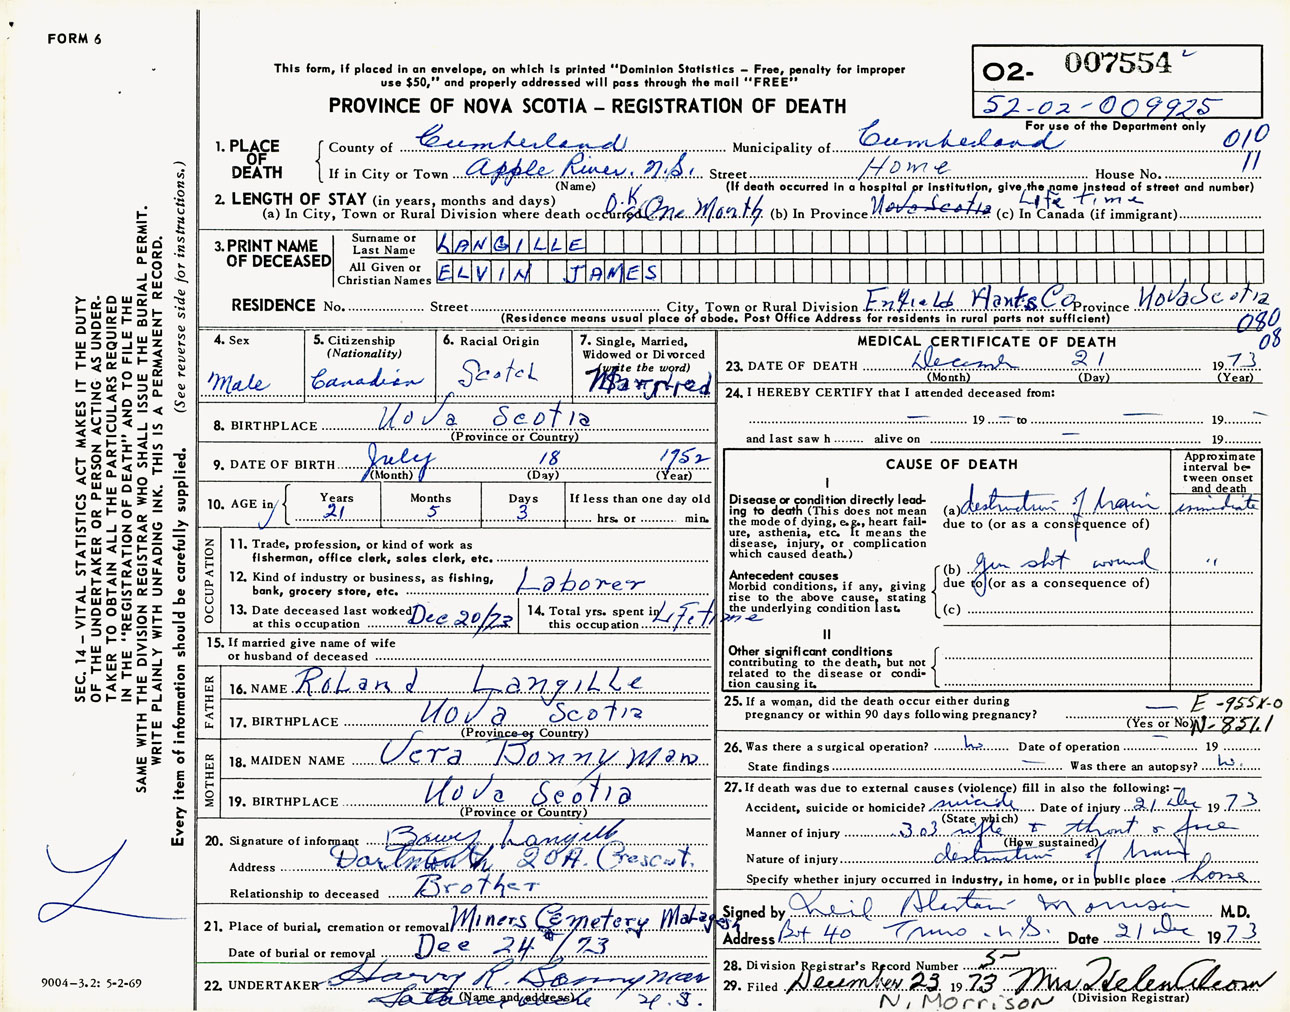 FORM 6
This form, if placed in an envelope, on which is printed "Dominion Statistics – Free, penalty for improper
use $50," and properly addressed will pass through the mail "FREE"
PROVINCE OF NOVA SCOTIA – REGISTRATION OF DEATH
02- 007554
52-02-009925
For use of the Department only
010
11
1. PLACE OF DEATH
County of Cumberland Municipality of Cumberland
If in City or Town Apple River, N.S. Street Home House No.
(Name) (If death occurred in a hospital or institution, give the name instead of street and number)
2. LENGTH OF STAY (in years, months and days)
(a) In City, Town or Rural Division where death occurred O.K. One Month (b) In Province Nova Scotia Life time (c) In Canada (if immigrant)
3. PRINT NAME OF DECEASED
Surname or Last Name LANGILLE
All Given or Christian Names ELVIN JAMES
RESIDENCE No. Street City, Town or Rural Division Enfield Hants Co Province Nova Scotia
(Residence means usual place of abode. Post Office Address for residents in rural parts not sufficient)
080
08
4. Sex Male
5. Citizenship (Nationality) Canadian
6. Racial Origin Scotch
7. Single, Married, Widowed or Divorced (write the word) Married
8. BIRTHPLACE Nova Scotia
(Province or Country)
9. DATE OF BIRTH July 18 1952
(Month) (Day) (Year)
10. AGE in Years 21 Months 5 Days 3
If less than one day old
hrs. or min.
OCCUPATION
11. Trade, profession, or kind of work as fisherman, office clerk, sales clerk, etc.
12. Kind of industry or business, as fishing, bank, grocery store, etc. Laborer
13. Date deceased last worked at this occupation Dec 20/73
14. Total yrs. spent in this occupation Lifetime
15. If married give name of wife or husband of deceased
FATHER
16. NAME Roland Langille
17. BIRTHPLACE Nova Scotia
(Province or Country)
MOTHER
18. MAIDEN NAME Vera Bonnyman
19. BIRTHPLACE Nova Scotia
(Province or Country)
20. Signature of informant Langille
Address Dartmouth 20A. Crescent.
Relationship to deceased Brother
21. Place of burial, cremation or removal Miners Cemetery
Date of burial or removal Dec 24/73
22. UNDERTAKER Harry R. Bonnyman
(Name and address) N.S.
MEDICAL CERTIFICATE OF DEATH
23. DATE OF DEATH December 21 1973
(Month) (Day) (Year)
24. I HEREBY CERTIFY that I attended deceased from:
— 19 — to — 19 —
and last saw h alive on — 19
CAUSE OF DEATH
Approximate interval between onset and death
I
Disease or condition directly leading to death (This does not mean the mode of dying, e.g., heart failure, asthenia, etc. It means the disease, injury, or complication which caused death.)
(a) destruction of brain immediate
due to (or as a consequence of)
Antecedent causes
Morbid conditions, if any, giving rise to the above cause, stating the underlying condition last.
(b) gun shot wound "
due to (or as a consequence of)
(c)
II
Other significant conditions
contributing to the death, but not related to the disease or condition causing it.
25. If a woman, did the death occur either during pregnancy or within 90 days following pregnancy? —
(Yes or No)
E-955X-0
N-851.1
26. Was there a surgical operation? no Date of operation — 19
State findings — Was there an autopsy? no.
27. If death was due to external causes (violence) fill in also the following:—
Accident, suicide or homicide? suicide Date of injury 21 Dec 1973
(State which)
Manner of injury .303 rifle throat face
(How sustained)
Nature of injury destruction of brain
Specify whether injury occurred in industry, in home, or in public place home
Signed by Neil Alastair Morrison M.D.
Address Box 40 Truro N.S. Date 21 Dec 1973
28. Division Registrar's Record Number 5
29. Filed December 23 1973 Mrs Helen
(Division Registrar)
N. Morrison
SEC. 14 – VITAL STATISTICS ACT MAKES IT THE DUTY
OF THE UNDERTAKER OR PERSON ACTING AS UNDER-
TAKER TO OBTAIN ALL THE PARTICULARS REQUIRED
IN THE "REGISTRATION OF DEATH" AND TO FILE THE
SAME WITH THE DIVISION REGISTRAR WHO SHALL ISSUE THE BURIAL PERMIT.
WRITE PLAINLY WITH UNFADING INK. THIS IS A PERMANENT RECORD.
Every item of information should be carefully supplied. (See reverse side for instructions.)
9004–3.2: 5-2-69